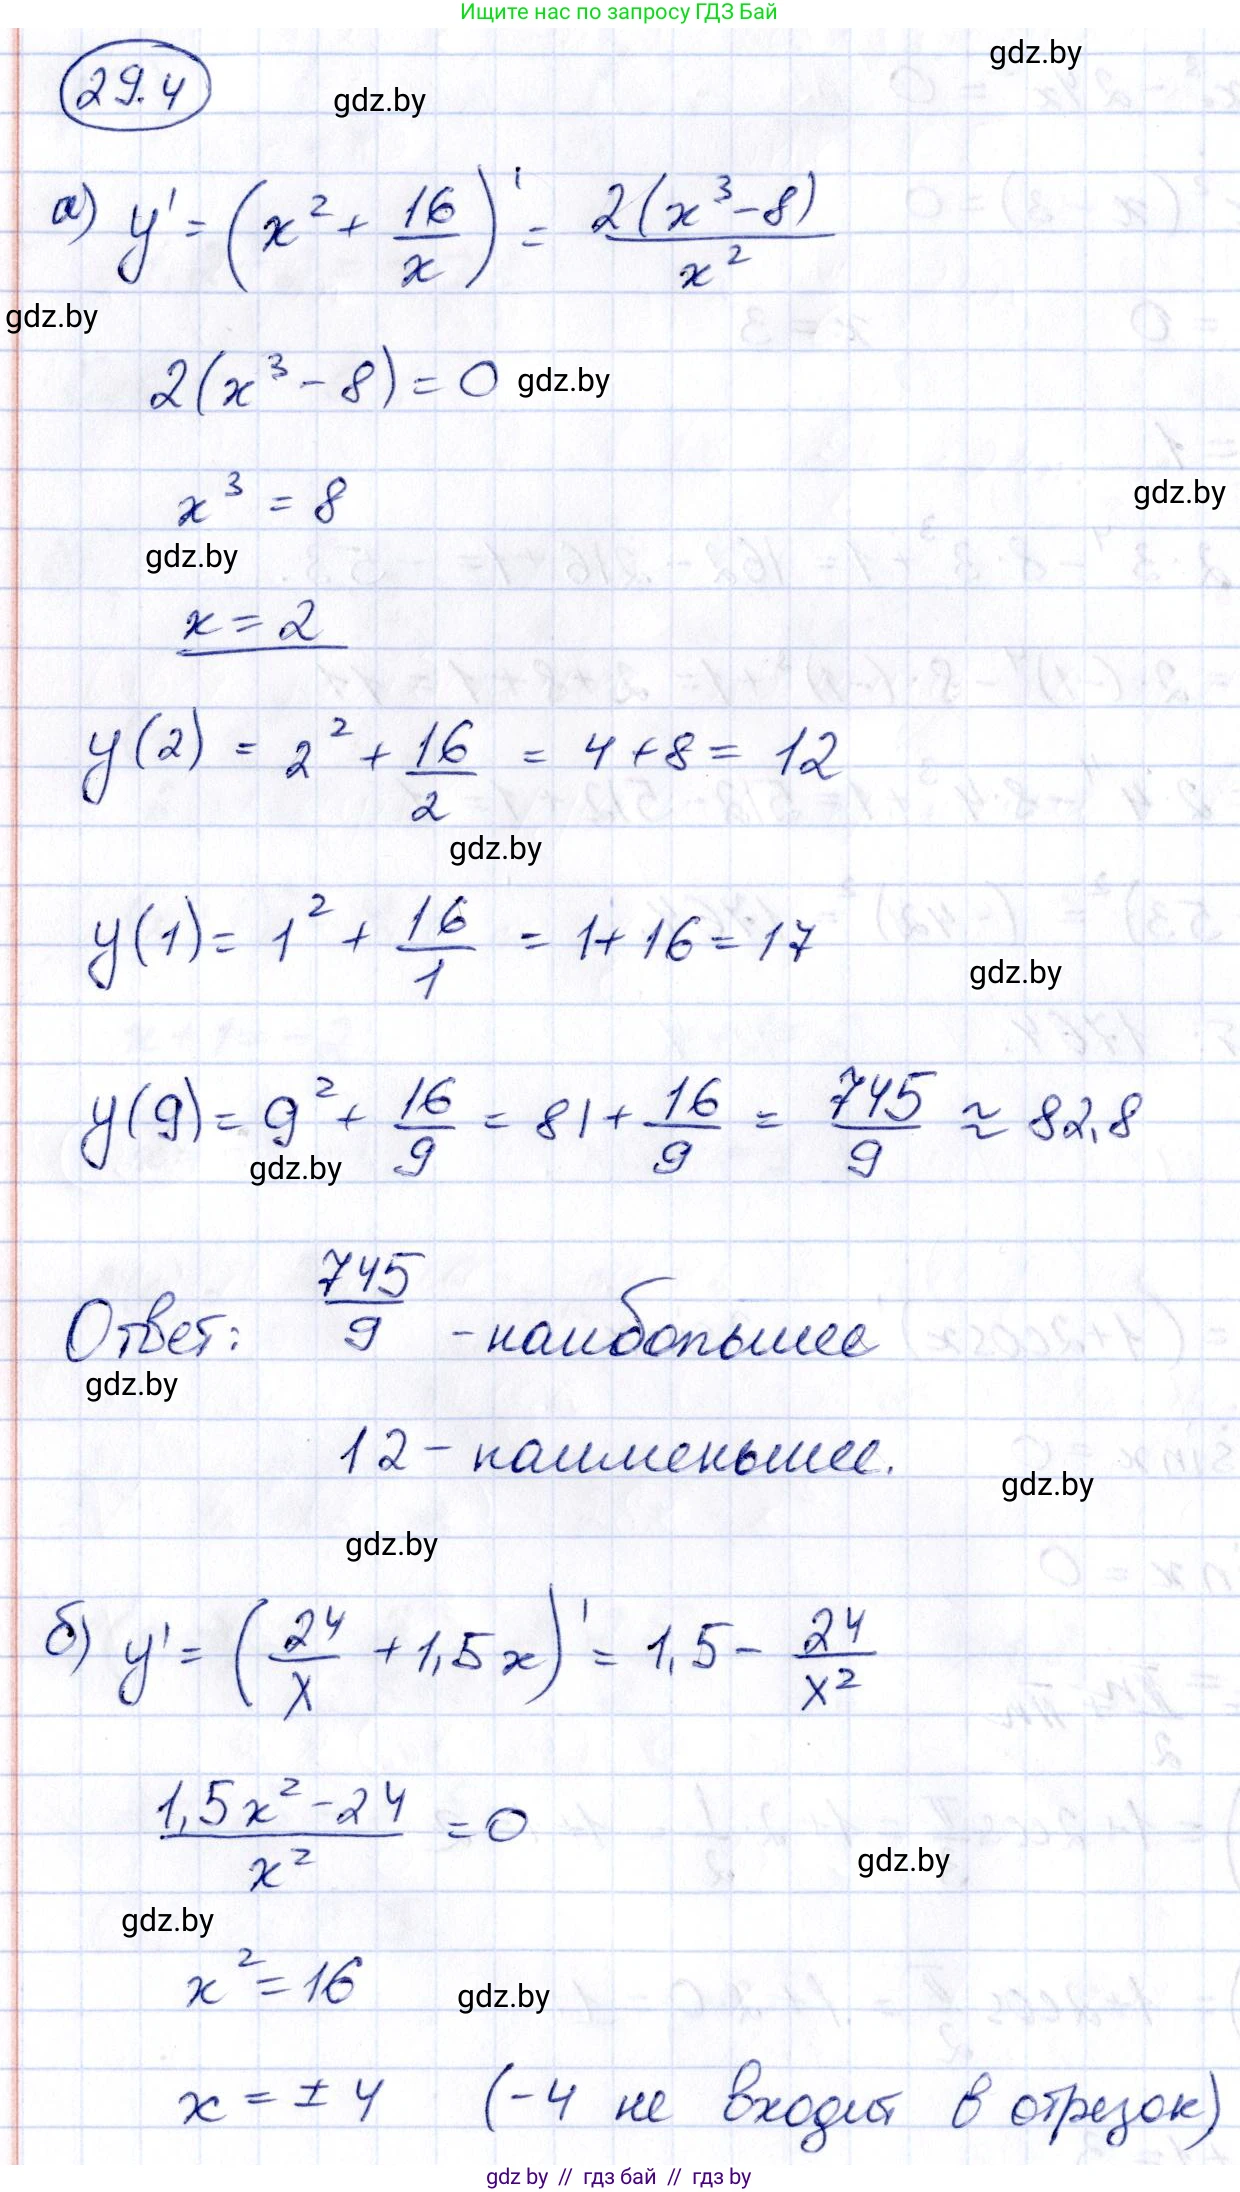 Ищите нас по запросу ГДЗ Бай
gdz.by
29.4
gdz.by
а) y' = (x² + 16/x)' = 2(x³-8)/x²
gdz.by
2(x³ - 8) = 0 gdz.by
x³ = 8
gdz.by
gdz.by
x = 2
y(2) = 2² + 16/2 = 4 + 8 = 12
gdz.by
y(1) = 1² + 16/1 = 1 + 16 = 17
gdz.by
y(9) = 9² + 16/9 = 81 + 16/9 = 745/9 ≈ 82,8
gdz.by
Ответ: 745/9 - наибольшее
gdz.by
12 - наименьшее.
gdz.by
gdz.by
б) y' = (24/x + 1,5x)' = 1,5 - 24/x²
(1,5x² - 24)/x² = 0
gdz.by
gdz.by
x² = 16
gdz.by
x = ± 4 (-4 не входит в отрезок)
gdz by // гдз бай // гдз by